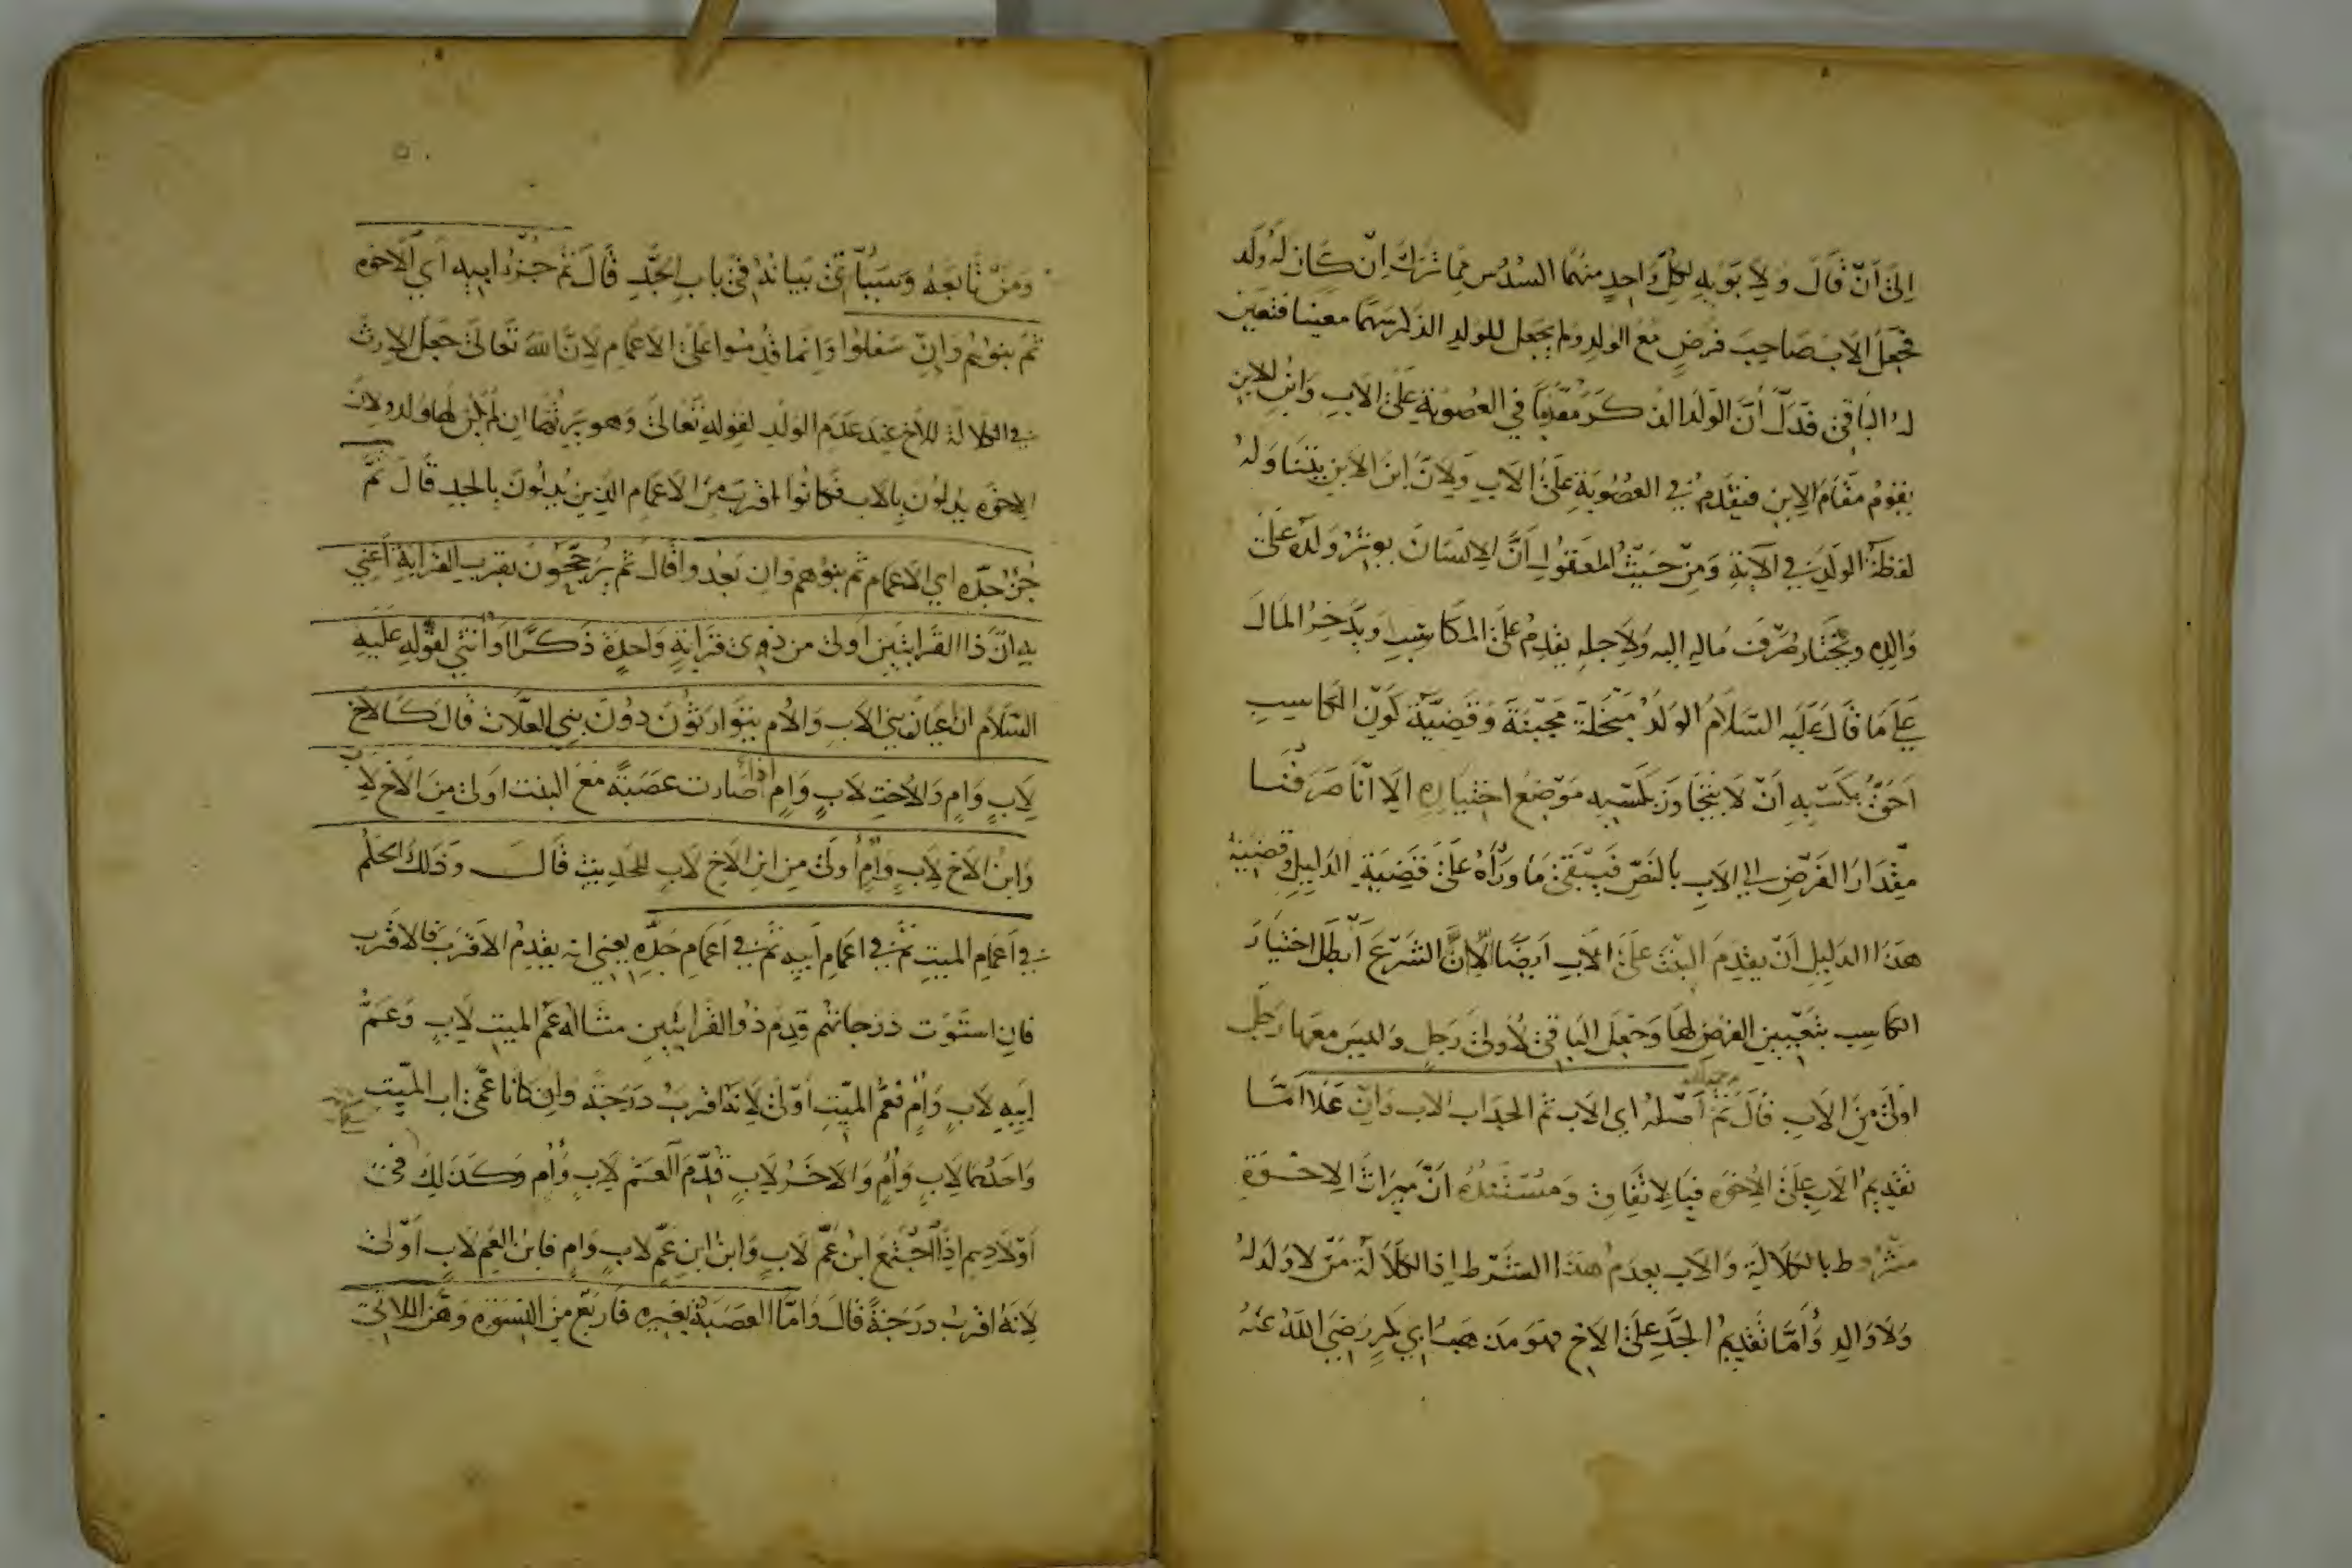 الى ان قال ولابويه لكل واحد منهما السدس مما ترك ان كان له ولد
فجعل الاب صاحب فرض مع الولد ولم يجعل للولد الذكر سهما معينا فتعين
له الباقي فدل ان الولد الذكر مقدما في العصوبة على الاب وابن الابن
يقوم مقام الابن فيقدم في العصوبة على الاب ولان ابن الابن يتناوله
لفظة الولد في الآية ومن حيث المعقول ان الانسان يوثر ولده على
والده ويختار صرف ماله اليه ولاجله يقدم على المكاسب ويدخر المال
على ما قال عليه السلام الولد مبخلة مجبنة وقضية كون الكاسب
احق بكسبه ان لا يتجاوز بكسبه موضع اختياره الا انا صرفنا
مقدار الفرض الى الاب بالنص فيبقى ما وراه على قضية الدليل وقضية
هذا الدليل ان يقدم البنت على الاب ايضا الا ان الشرع ابطل اختيار
الكاسب بتعيين الفرض لها وجعل الباقي لاولى رجل وليس معها رجل
اولى من الاب قال رحمه الله ثم اصله اي الاب ثم الجد اب الاب وان علا اما
تقديم الاب على الاخوة فبالاتفاق ومستنده ان ميراث الاخوة
مشروط بالكلالة والاب يعدم هذا الشرط اذ الكلالة من لا ولد له
ولا والد واما تقديم الجد على الاخ فهو مذهب ابي بكر رضي الله عنه
ومن تابعه وسيأتي بيانه في باب الجد قال ثم جزؤ ابيه اي الاخوة
ثم بنوهم وان سفلوا وانما قدموا على الاعمام لان الله تعالى جعل الارث
في الكلالة للاخ عند عدم الولد لقوله تعالى وهو يرثها ان لم يكن لها ولد ولان
الاخوة يدلون بالاب فكانوا اقرب من الاعمام الذين يدلون بالجد قال ثم
جزؤ جده اي الاعمام ثم بنوهم وان بعدوا قال ثم يرجحون بقرب القرابة اعني
به ان ذا القرابتين اولى من ذوي قرابة واحدة ذكرا او انثى لقوله عليه
السلام ان اعيان بني الاب والام يتوارثون دون بني العلات قال كالاخ
لاب وام والاخت لاب وام اذا صارت عصبة مع البنت اولى من الاخ لاب
وابن الاخ لاب وام اولى من ابن الاخ لاب للحديث قال وذلك الحكم
في اعمام الميت ثم في اعمام ابيه ثم في اعمام جده يعني انه يقدم الاقرب فالاقرب
فان استوت درجاتهم قدم ذو القرابتين مثاله عم الميت لاب وعم
ابيه لاب وام فعم الميت اولى لانه اقرب درجة وان كانا عمي اب الميت
واحدهما لاب وام والاخر لاب قدم العم لاب وام وكذلك في
اولادهم اذا اجتمع ابن عم لاب وابن ابن عم لاب وام فابن العم لاب اولى
لانه اقرب درجة قال واما العصبة بغيره فاربع من النسوة وهن اللاتي